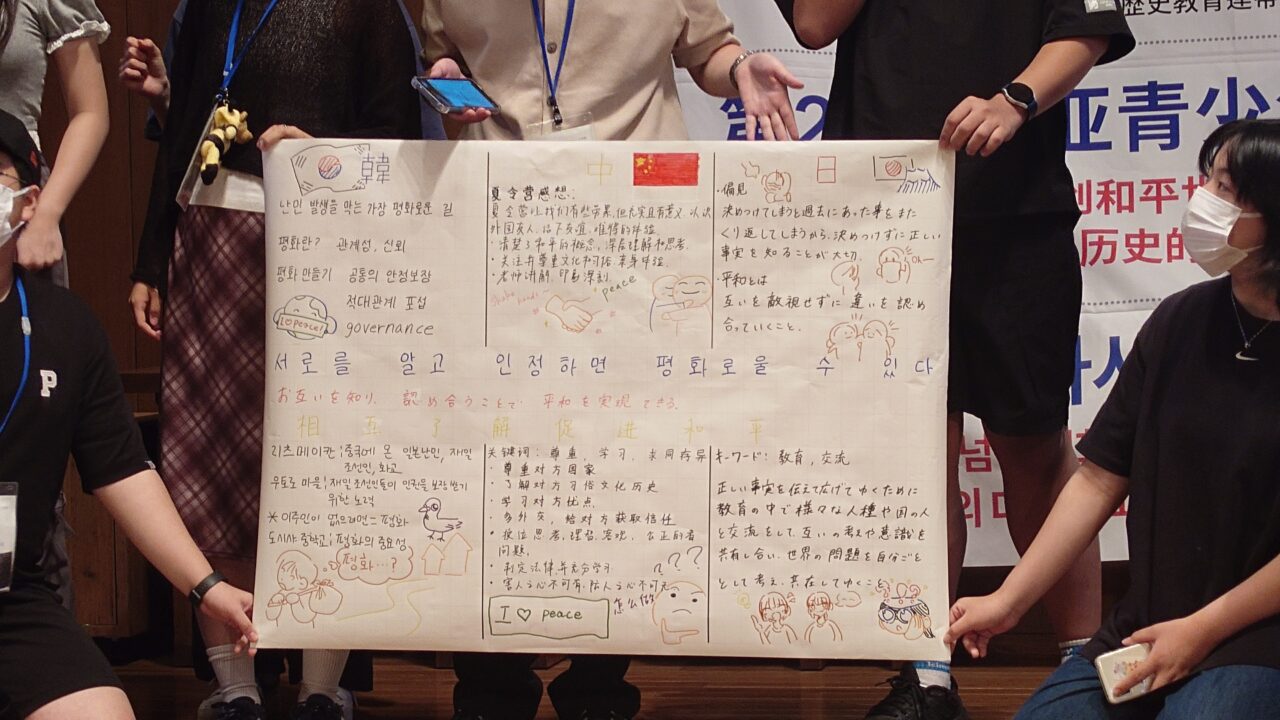 韓
난민 발생을 막는 가장 평화로운 길
평화란? 관계성, 신뢰
평화 만들기 공통의 안정보장
적대관계 포섭
governance
I♡peace!
中
夏令营感想:
夏令营让我们有些劳累,但充实且有意义,认识
外国友人,结下友谊,难得的体验。
·清楚了和平的概念,深层理解和思考。
·关注并尊重文化和习俗,亲身体验。
·老师讲解,印象深刻。
shake hands
peace
日
・偏見
決めつけてしまうと過去にあった事をまた
くり返してしまうから、決めつけずに正しい
事実を知ることが大切。
・平和とは
互いを敵視せずに違いを認め
合っていくこと。
서로를 알고 인정하면 평화로울 수 있다
お互いを知り、認め合うことで 平和を実現できる。
相互了解促进和平
리츠메이칸 : 중국에 온 일본난민, 재일
조선인, 화교
우토로 마을 : 재일조선인들이 인권을 보장받기
위한 노력
※ 이주민이 없으려면 = 평화
도시샤 중학교 : 평화의 중요성
평화...?
关键词: 尊重, 学习, 求同存异
·尊重对方国家
·了解对方习俗文化历史
·学习对方优点
·多外交, 给对方获取信任
·换位思考,理智,客观,公正的看
问题,
·制定法律,并充分学习
·害人之心不可有,防人之心不可无
I ♡ peace
怎么做
???
キーワード: 教育, 交流
正しい事実を伝えて広げてゆくために
教育の中で様々な人種や国の人
と交流をして、互いの考えや意識を
共有し合い、世界の問題を自分ごと
として考え、共存してゆくこと
P
歴史教育連帯
第2
亚青少
创和平
历史的